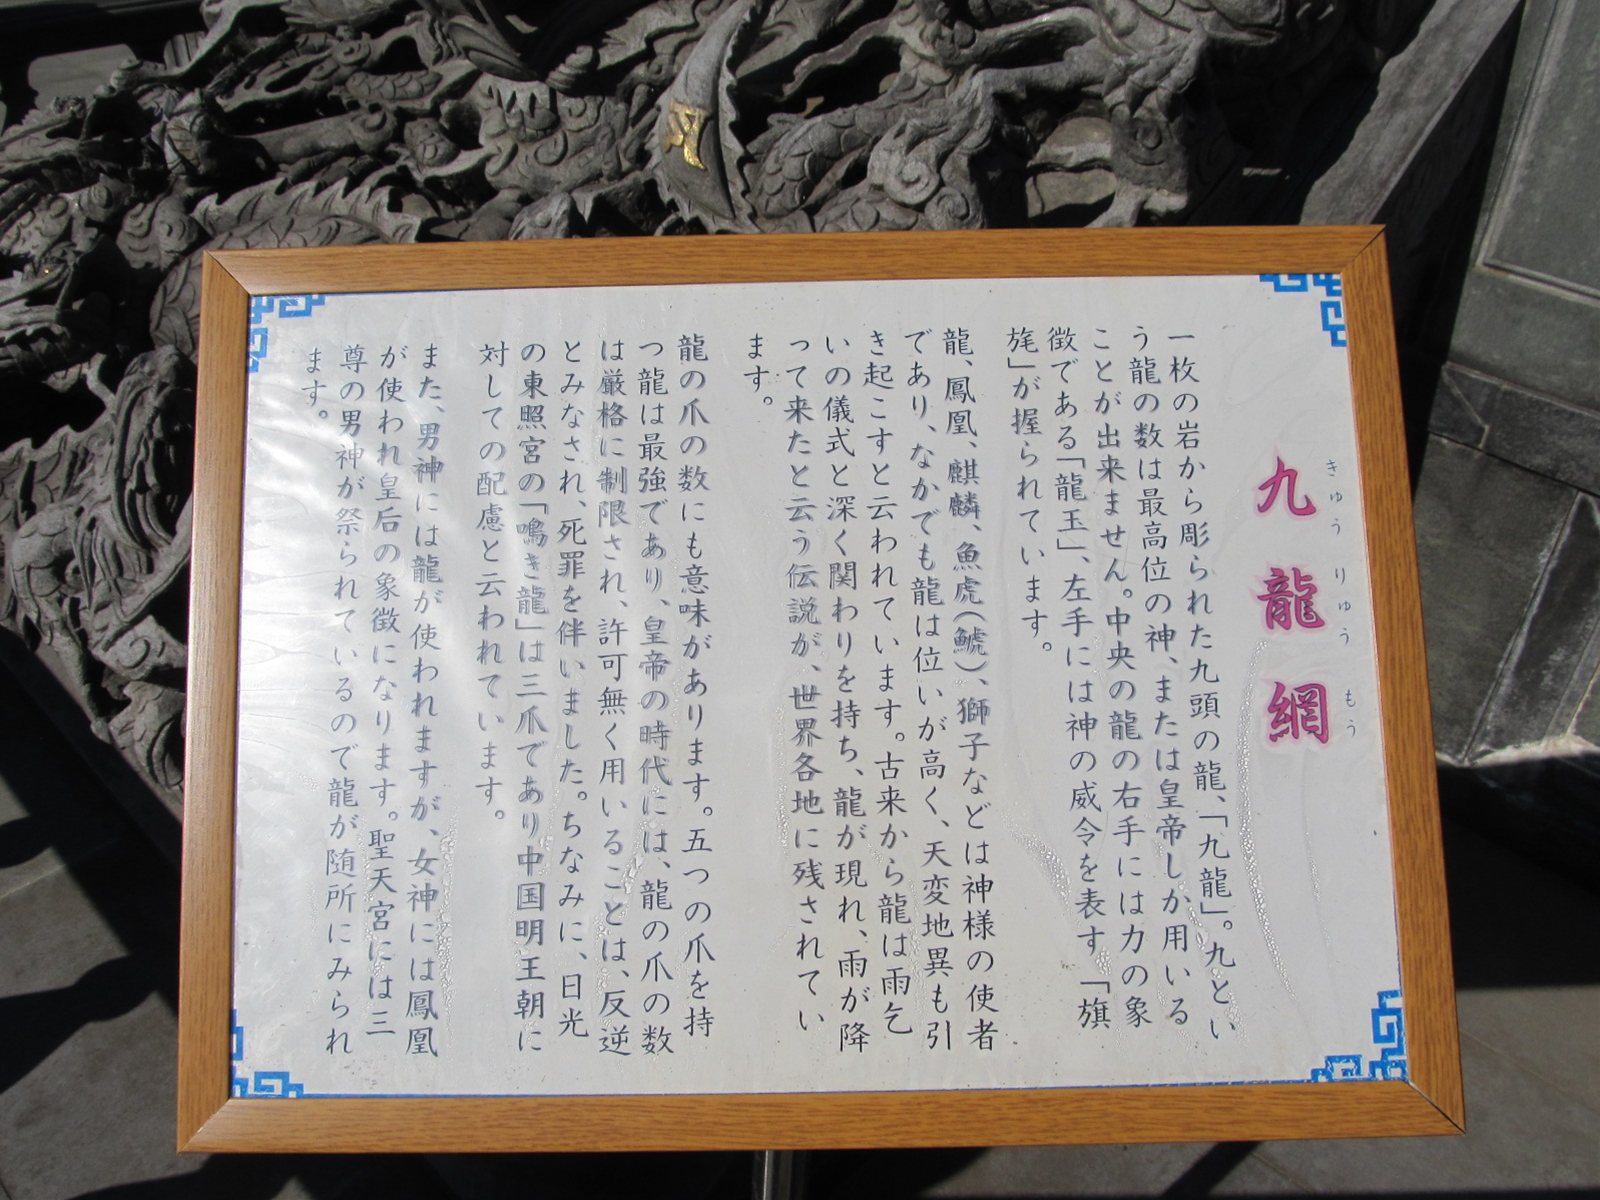 九龍網
きゅう りゅう もう
一枚の岩から彫られた九頭の龍、「九龍」。九とい
う龍の数は最高位の神、または皇帝しか用いる
ことが出来ません。中央の龍の右手には力の象
徴である「龍玉」、左手には神の威令を表す「旗
旄」が握られています。
龍、鳳凰、麒麟、魚虎(鯱)、獅子などは神様の使者
であり、なかでも龍は位いが高く、天変地異も引
き起こすと云われています。古来から龍は雨乞
いの儀式と深く関わりを持ち、龍が現れ、雨が降
って来たと云う伝説が、世界各地に残されてい
ます。
龍の爪の数にも意味があります。五つの爪を持
つ龍は最強であり、皇帝の時代には、龍の爪の数
は厳格に制限され、許可無く用いることは、反逆
とみなされ、死罪を伴いました。ちなみに、日光
の東照宮の「鳴き龍」は三爪であり中国明王朝に
対しての配慮と云われています。
また、男神には龍が使われますが、女神には鳳凰
が使われ皇后の象徴になります。聖天宮には三
尊の男神が祭られているので龍が随所にみられ
ます。